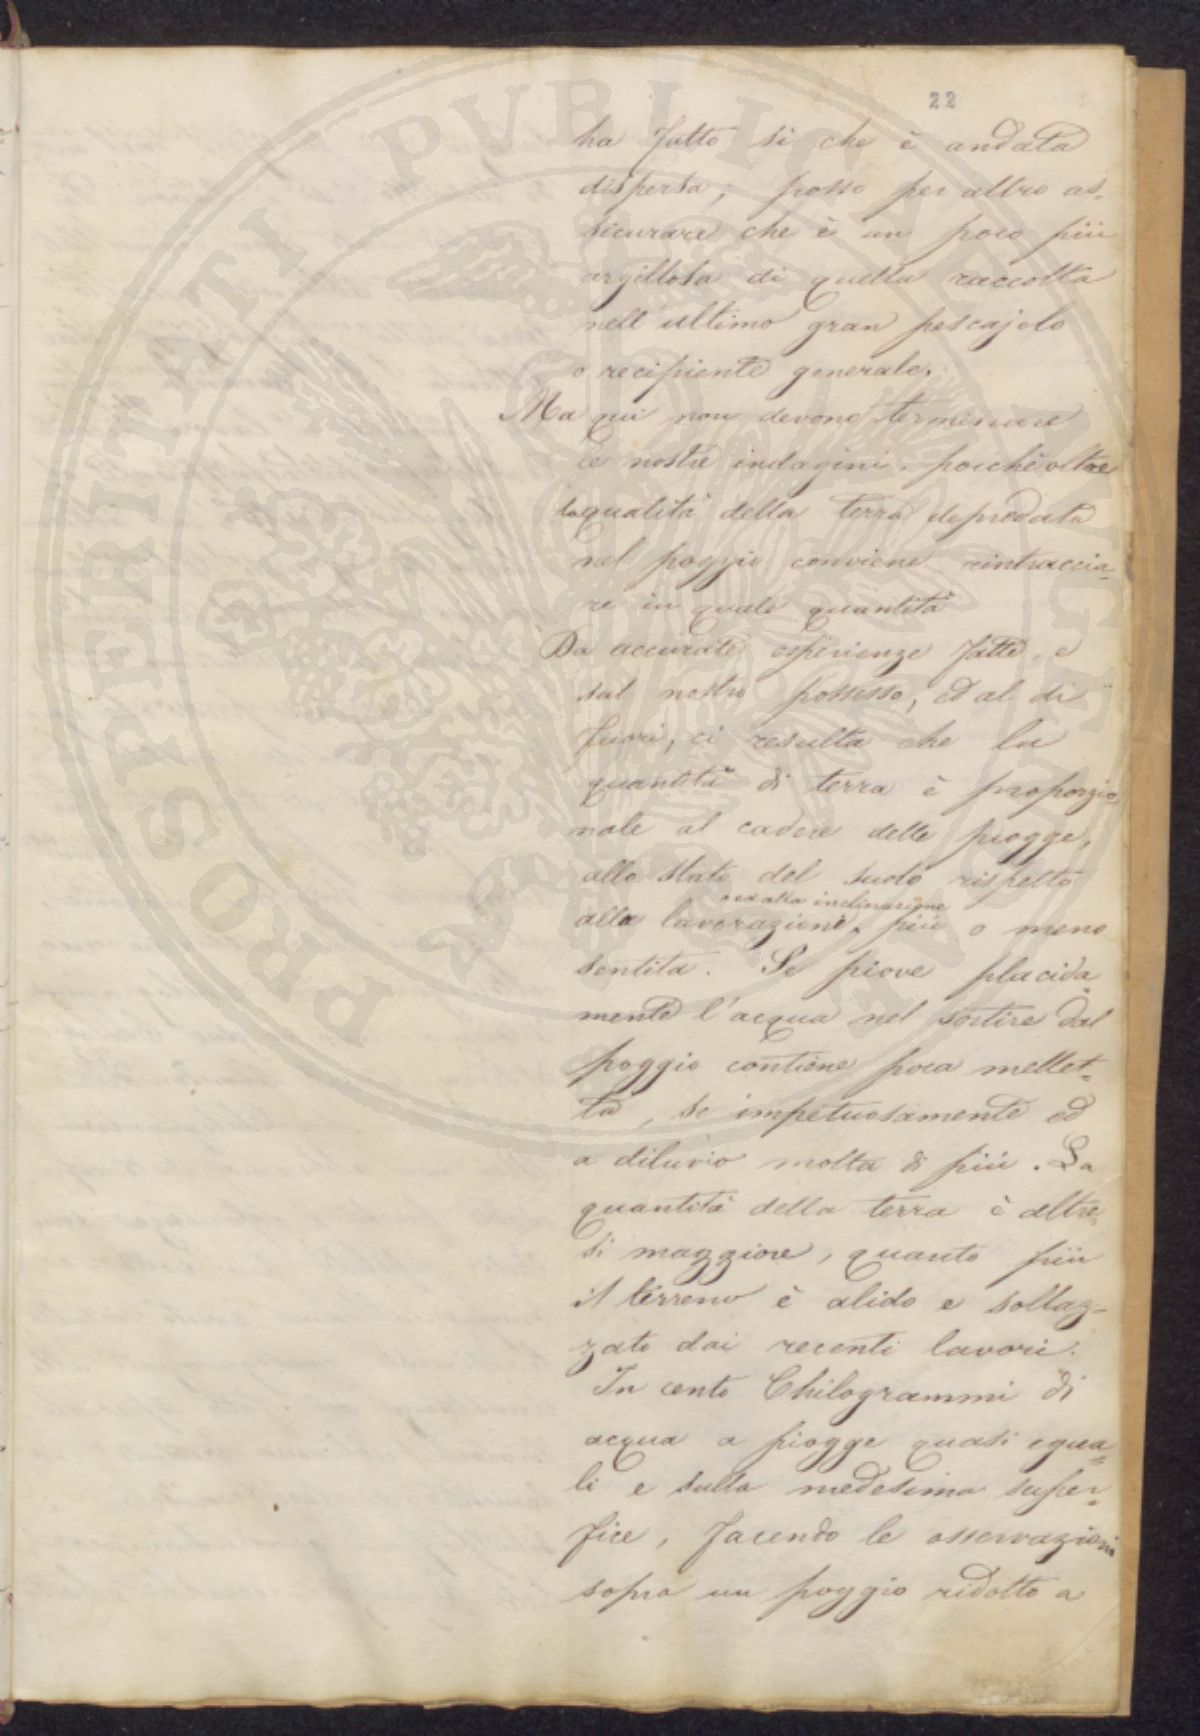 22
ha fatto sì che è andata
dispersa; posso per altro as-
sicurare che è un poco più
argillosa di quella raccolta
nell'ultimo gran pescajolo
o recipiente generale.
Ma qui non devono terminare
le nostre indagini, poichè oltre
la qualità della terra depredata
nel poggio conviene rintraccia=
re in quale quantità
Da accurate esperienze fatte, e
sul nostro possesso, ed al di
fuori, ci resulta che la
quantità di terra è proporzio
nale al cadere delle piogge,
allo stato del suolo rispetto
o ed alla inclinazione
alla lavorazione, più o meno
sentita. Se piove placida
mente l'acqua nel sortire dal
poggio contiene poca mellet=
ta, se impetuosamente ed
a diluvio molta di più. La
quantità della terra è altre
sì maggiore, quanto più
il terreno è alido e sollaz-
zato dai recenti lavori.
In cento Chilogrammi di
acqua a piogge quasi egua=
li e sulla medesima super=
fice, facendo le osservazioni
sopra un poggio ridotto a
PROSPERITATI PVBLICAE AVGENDAE